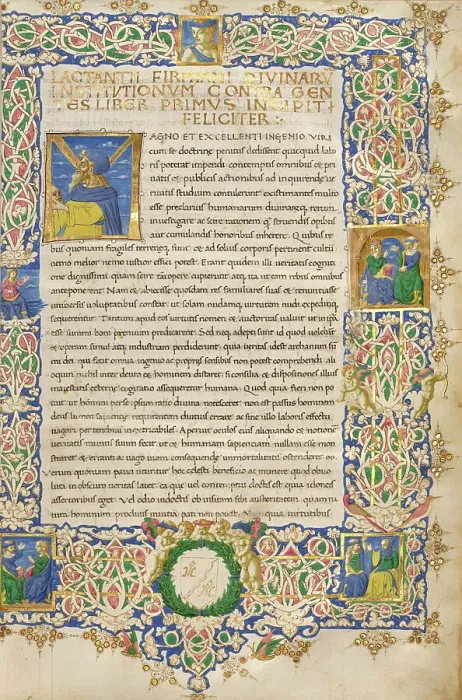 LACTANTII FIRMIANI DIVINARV̄
INSTITVTIONVM CONTRA GEN
TES LIBER PRIMVS INCIPIT
FELICITER :·
AGNO ET EXCELLENTI INGENIO VIRI
cum se doctrinę penitus dedissent quicquid labo
ris poterat impendi contemptis omnibus & pri
uatis & publicis actionibus ad inquirendę ue
ritatis studium contulerunt existimantes multo
esse preclarius humanarum diuinarūq; rerum
inuestigare ac scire rationem q̃ struendis opibus
aut cumulandis honoribus inherere. Quibus re
bus quoniam fragiles terreneq; sunt & ad solius corporis pertinent cultū
nemo melior nemo iustior effici potest. Erant quidem illi ueritatis cogniti
one dignissimi quam scire tātopere cupierunt atq; ita ut eam rebus omnibus
anteponerent. Nam & abiecisse quosdam res familiares suas & renuntiasse
uniuersis uoluptatibus constat ut solam nudamq; uirtutem nudi expeditiq;
sequerentur. Tantum apud eos uirtutis nomen & auctoritas ualuit ut in ipsa
esse summi boni premium predicarent. Sed neq; adepti sunt id quod uolebāt
& operam simul atq; industriam perdiderunt quia ueritas idest archanum sū
mi dei qui fecit omnia ingenio ac propriis sensibus non potest comprehendi ali
oquin nihil inter deum & hominem distaret si consilia & dispositiones illius
maiestatis eternę cogitatio assequeretur humana. Quod quia fieri non po
tuit ut homini per se ipsum ratio diuina notesceret non est passus hominem
deus lumen sapientię requirentem diutius errare ac sine ullo laboris effectu
uagari per tenebras inextricabiles. Aperuit oculos eius aliquando & notionē
ueritatis munus suum fecit ut & humanam sapientiam nullam esse mon
straret & erranti ac uago uiam consequendę immortalitatis ostenderet.
Verum quoniam pauci utuntur hoc celesti beneficio ac munere quod obuo
luta in obscuro ueritas latet ea que uel contemptui doctis est quia idoneis
assertoribus eget. Vel odio indoctis ob insitam sibi austeritatem quam na
tura hominum procliuis in uitia pati non potest. quia uirtutibus